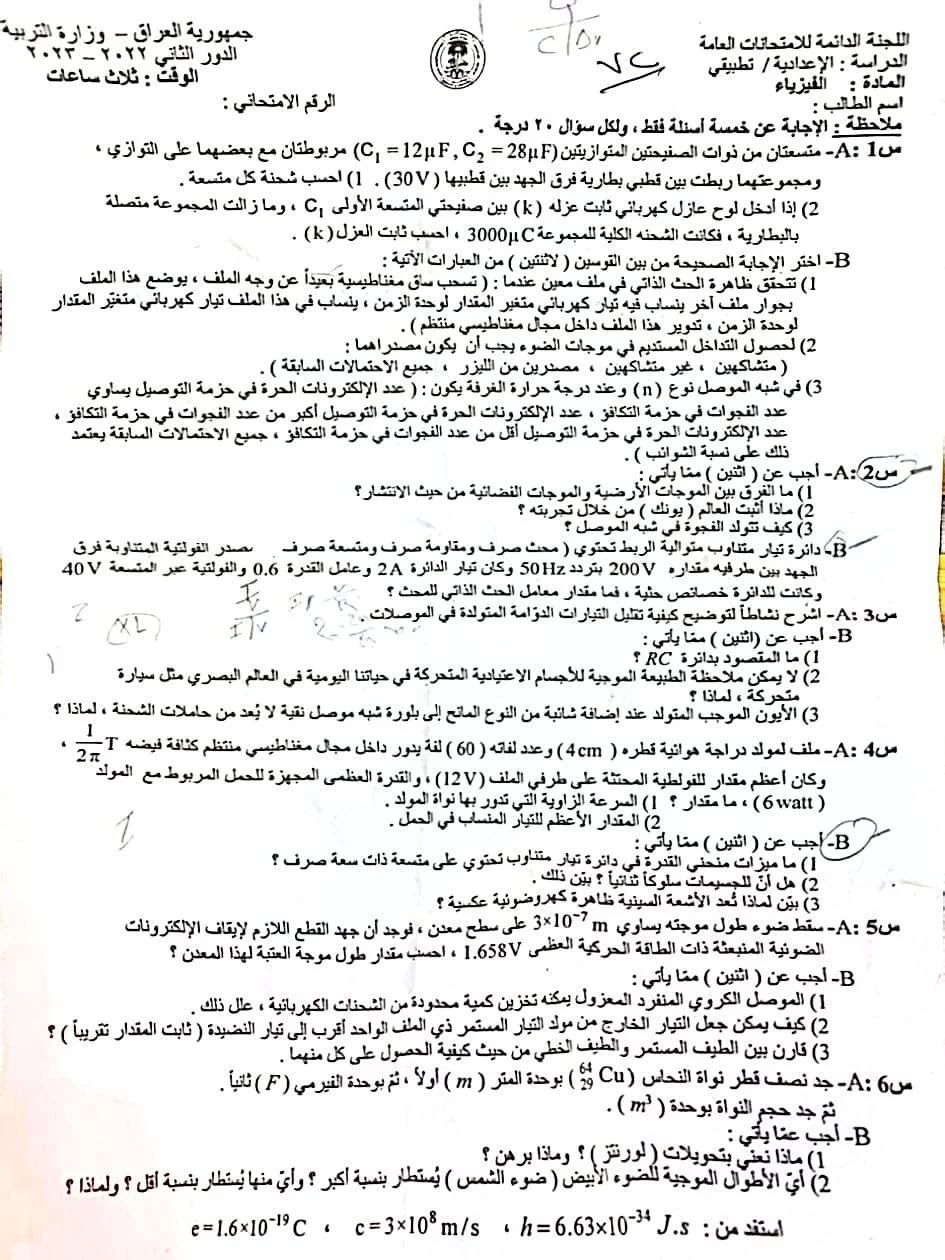 جمهورية العراق – وزارة التربية
الدور الثاني ٢٠٢٢ – ٢٠٢٣
الوقت : ثلاث ساعات
الرقم الامتحاني :
اللجنة الدائمة للامتحانات العامة
الدراسة : الإعدادية / تطبيقي
المادة : الفيزياء
اسم الطالب :
ملاحظة : الإجابة عن خمسة أسئلة فقط ، ولكل سؤال ٢٠ درجة .
س1 :A- متسعتان من ذوات الصفيحتين المتوازيتين (C₁ = 12μF , C₂ = 28μF) مربوطتان مع بعضهما على التوازي ،
ومجموعتهما ربطت بين قطبي بطارية فرق الجهد بين قطبيها (30V) . 1) احسب شحنة كل متسعة .
2) إذا أدخل لوح عازل كهربائي ثابت عزله (k) بين صفيحتي المتسعة الأولى C₁ ، وما زالت المجموعة متصلة
بالبطارية ، فكانت الشحنه الكلية للمجموعة 3000μC ، احسب ثابت العزل (k) .
B- اختر الإجابة الصحيحة من بين القوسين (لاثنتين) من العبارات الآتية :
1) تتحقق ظاهرة الحث الذاتي في ملف معين عندما : ( تسحب ساق مغناطيسية بعيداً عن وجه الملف ، يوضع هذا الملف
بجوار ملف آخر ينساب فيه تيار كهربائي متغير المقدار لوحدة الزمن ، ينساب في هذا الملف تيار كهربائي متغيّر المقدار
لوحدة الزمن ، تدوير هذا الملف داخل مجال مغناطيسي منتظم ) .
2) لحصول التداخل المستديم في موجات الضوء يجب أن يكون مصدراهما :
( متشاكهين ، غير متشاكهين ، مصدرين من الليزر ، جميع الاحتمالات السابقة ) .
3) في شبه الموصل نوع (n) وعند درجة حرارة الغرفة يكون : ( عدد الإلكترونات الحرة في حزمة التوصيل يساوي
عدد الفجوات في حزمة التكافؤ ، عدد الإلكترونات الحرة في حزمة التوصيل أكبر من عدد الفجوات في حزمة التكافؤ ،
عدد الإلكترونات الحرة في حزمة التوصيل أقل من عدد الفجوات في حزمة التكافؤ ، جميع الاحتمالات السابقة يعتمد
ذلك على نسبة الشوائب ) .
س2 :A- أجب عن ( اثنين ) ممّا يأتي :
1) ما الفرق بين الموجات الأرضية والموجات الفضائية من حيث الانتشار؟
2) ماذا أثبت العالم ( يونك ) من خلال تجربته ؟
3) كيف تتولد الفجوة في شبه الموصل ؟
B- دائرة تيار متناوب متوالية الربط تحتوي ( محث صرف ومقاومة صرف ومتسعة صرف مصدر الفولتية المتناوبة فرق
الجهد بين طرفيه مقداره 200V بتردد 50Hz وكان تيار الدائرة 2A وعامل القدرة 0.6 والفولتية عبر المتسعة 40V
وكانت للدائرة خصائص حثية ، فما مقدار معامل الحث الذاتي للمحث ؟
س3 :A- اشرح نشاطاً لتوضيح كيفية تقليل التيارات الدوّامة المتولدة في الموصلات .
B- أجب عن (اثنين) ممّا يأتي :
1) ما المقصود بدائرة RC ؟
2) لا يمكن ملاحظة الطبيعة الموجية للأجسام الاعتيادية المتحركة في حياتنا اليومية في العالم البصري مثل سيارة
متحركة ، لماذا ؟
3) الأيون الموجب المتولد عند إضافة شائبة من النوع المانح إلى بلورة شبه موصل نقية لا يُعد من حاملات الشحنة ، لماذا ؟
س4 :A- ملف لمولد دراجة هوائية قطره (4cm) وعدد لفاته (60) لفة يدور داخل مجال مغناطيسي منتظم كثافة فيضه 1/2π T ،
وكان أعظم مقدار للفولطية المحتثة على طرفي الملف (12V) ، والقدرة العظمى المجهزة للحمل المربوط مع المولد
(6watt) ، ما مقدار ؟ 1) السرعة الزاوية التي تدور بها نواة المولد .
2) المقدار الأعظم للتيار المنساب في الحمل .
B- أجب عن ( اثنين ) ممّا يأتي :
1) ما ميزات منحني القدرة في دائرة تيار متناوب تحتوي على متسعة ذات سعة صرف ؟
2) هل أنّ للجسيمات سلوكاً ثنائياً ؟ بيّن ذلك .
3) بيّن لماذا تُعد الأشعة السينية ظاهرة كهروضوئية عكسية ؟
س5 :A- سقط ضوء طول موجته يساوي 3×10⁻⁷ m على سطح معدن ، فوجد أن جهد القطع اللازم لإيقاف الإلكترونات
الضوئية المنبعثة ذات الطاقة الحركية العظمى 1.658V ، احسب مقدار طول موجة العتبة لهذا المعدن ؟
B- أجب عن ( اثنين ) ممّا يأتي :
1) الموصل الكروي المنفرد المعزول يمكنه تخزين كمية محدودة من الشحنات الكهربائية ، علل ذلك .
2) كيف يمكن جعل التيار الخارج من مولد التيار المستمر ذي الملف الواحد أقرب إلى تيار النضيدة ( ثابت المقدار تقريباً ) ؟
3) قارن بين الطيف المستمر والطيف الخطي من حيث كيفية الحصول على كل منهما .
س6 :A- جد نصف قطر نواة النحاس (⁶⁴₂₉Cu) بوحدة المتر (m) أولاً ، ثمّ بوحدة الفيرمي (F) ثانياً .
ثمّ جد حجم النواة بوحدة (m³) .
B- أجب عمّا يأتي :
1) ماذا نعني بتحويلات ( لورنتز ) ؟ وماذا برهن ؟
2) أيّ الأطوال الموجية للضوء الأبيض ( ضوء الشمس ) يُستطار بنسبة أكبر ؟ وأيّ منها يُستطار بنسبة أقل ؟ ولماذا ؟
استفد من : h = 6.63×10⁻³⁴ J.s ، c = 3×10⁸ m/s ، e = 1.6×10⁻¹⁹ C